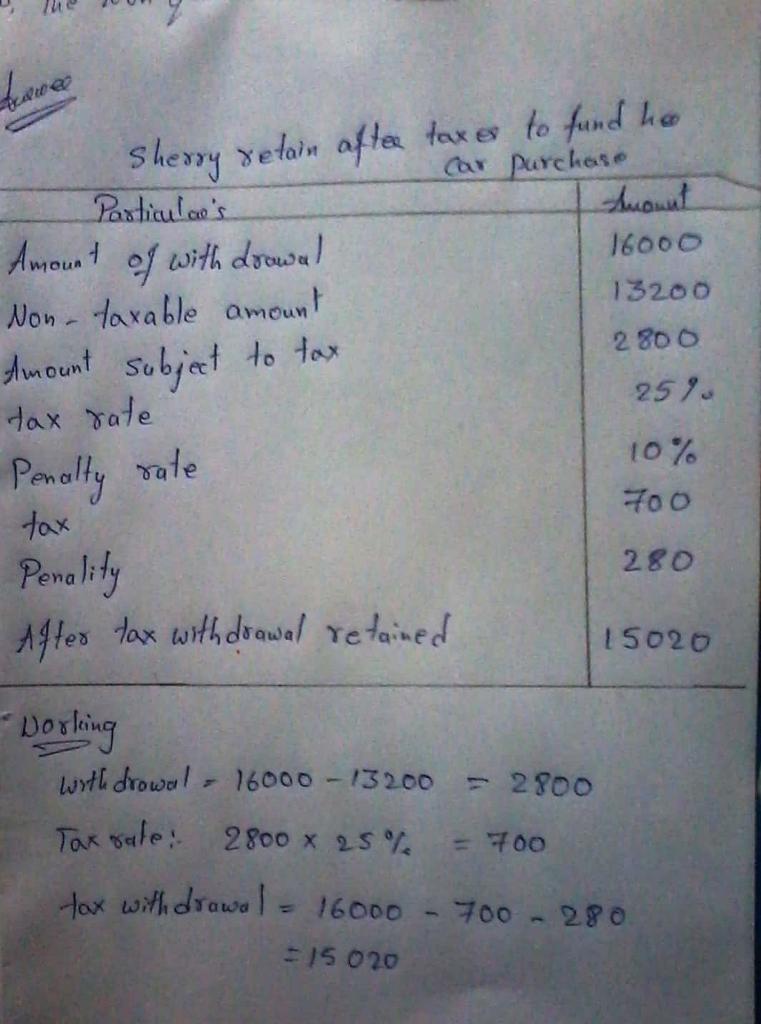 The
Sherry retain after taxes to fund her
car purchase
Particular's Amount
Amount of withdrawal 16000
Non-taxable amount 13200
Amount subject to tax 2800
tax rate 25%
Penalty rate 10%
tax 700
Penality 280
After tax withdrawal retained 15020
Working
Withdrowal = 16000 - 13200 = 2800
Tax rate:- 2800 x 25% = 700
tax withdrawal = 16000 - 700 - 280
= 15020